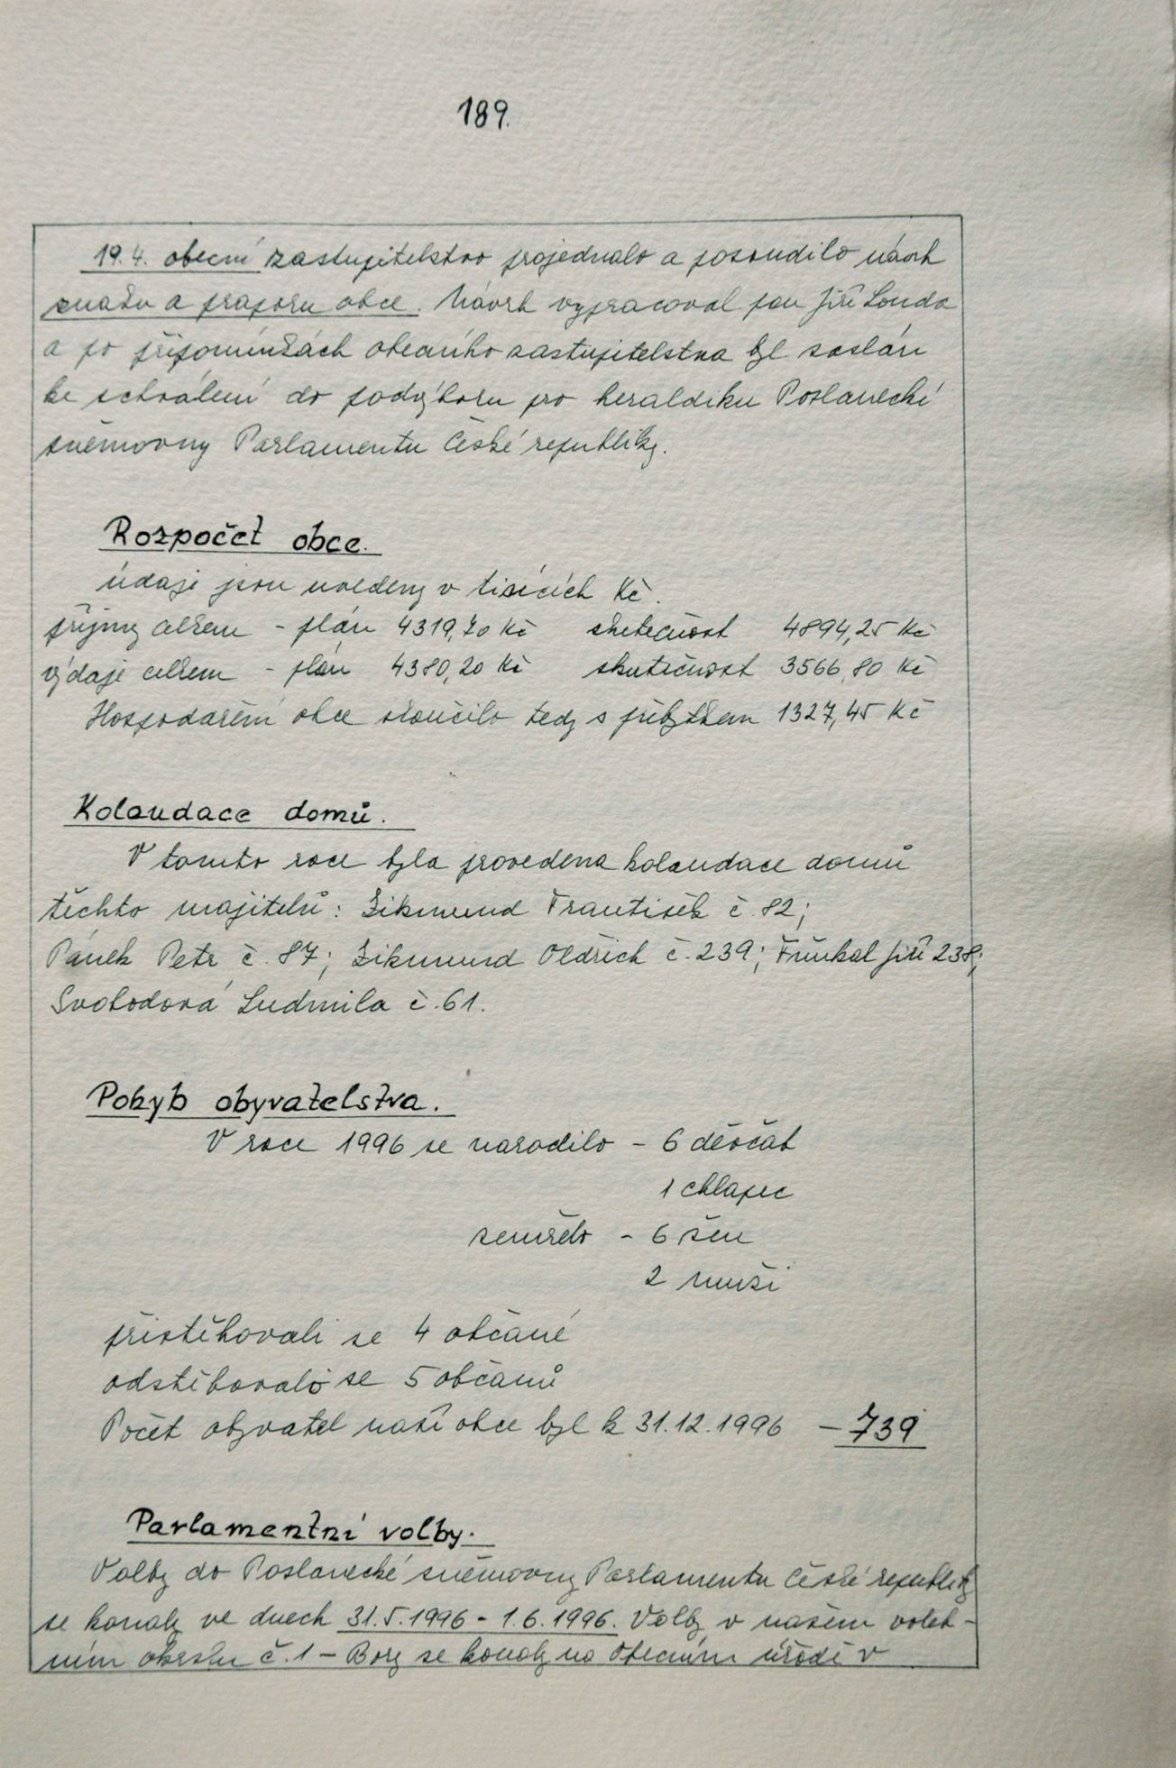 189.
19.4. obecní zastupitelstvo projednalo a posoudilo návrh
znaku a praporu obce. Návrh vypracoval pan Jiří Louda
a po připomínkách obecního zastupitelstva byl zaslán
ke schválení do podvýboru pro heraldiku Poslanecké
sněmovny Parlamentu České republiky.
Rozpočet obce.
údaje jsou uvedeny v tisících Kč.
příjmy celkem - plán 4319,70 Kč skutečnost 4894,25 Kč
výdaje celkem - plán 4380,20 Kč skutečnost 3566,80 Kč
Hospodaření obce skončilo tedy s přebytkem 1327,45 Kč
Kolaudace domů.
V tomto roce byla provedena kolaudace domů
těchto majitelů: Zikmund František č. 82;
Pánek Petr č. 87; Zikmund Oldřich č. 239; Fuňkal Jiří 238;
Svobodová Ludmila č. 61.
Pohyb obyvatelstva.
V roce 1996 se narodilo - 6 děvčat
1 chlapec
zemřelo - 6 žen
2 muži
přistěhovali se 4 občané
odstěhovalo se 5 občanů
Počet obyvatel naší obce byl k 31.12.1996 - 739
Parlamentní volby.
Volby do Poslanecké sněmovny Parlamentu České republiky
se konaly ve dnech 31.5.1996 - 1.6.1996. Volby v našem voleb-
ním okrsku č. 1 - Bory se konaly na Obecním úřadě v